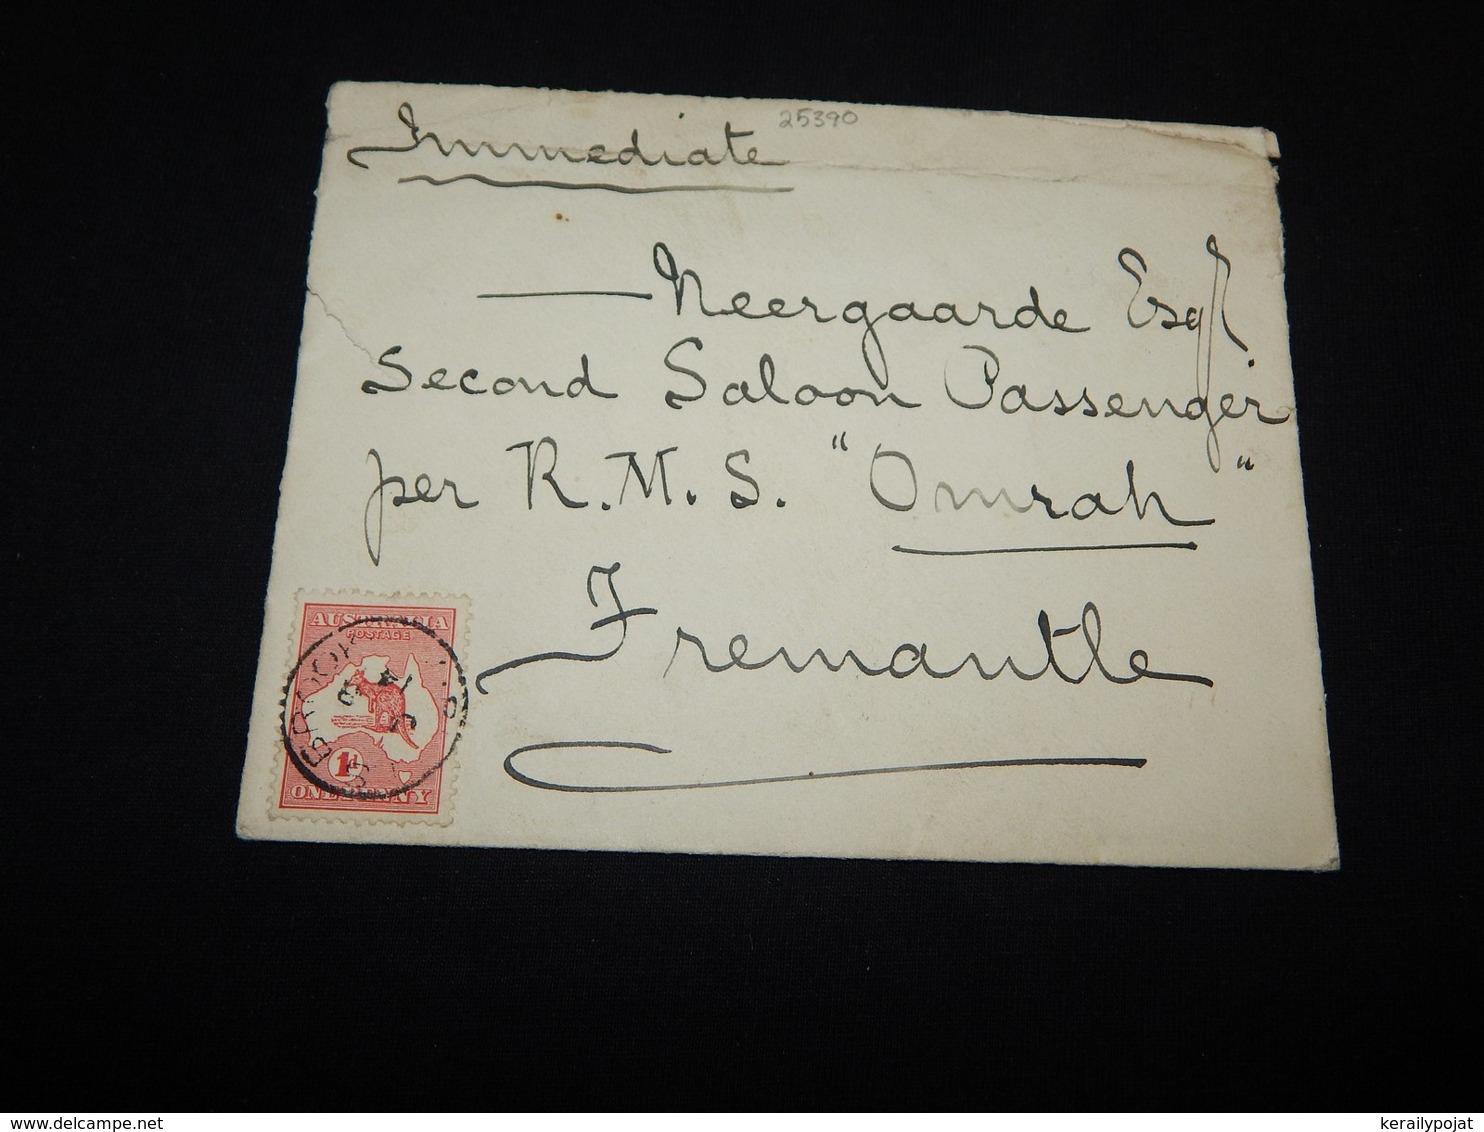 Immediate
25390
— Neergaarde Esqr
Second Saloon Passenger
per R.M.S. "Omrah"
Fremantle
AUSTRALIA
POSTAGE
1D
ONE PENNY
© www.delcampe.net
kerailypojat